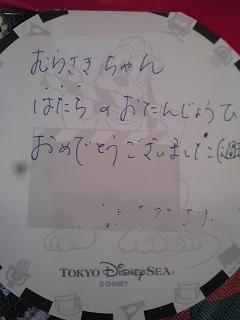 むらさきちゃん
はたちのおたんじょうひ
おめでとうございました
TOKYO DISNEYSEA®
© DISNEY